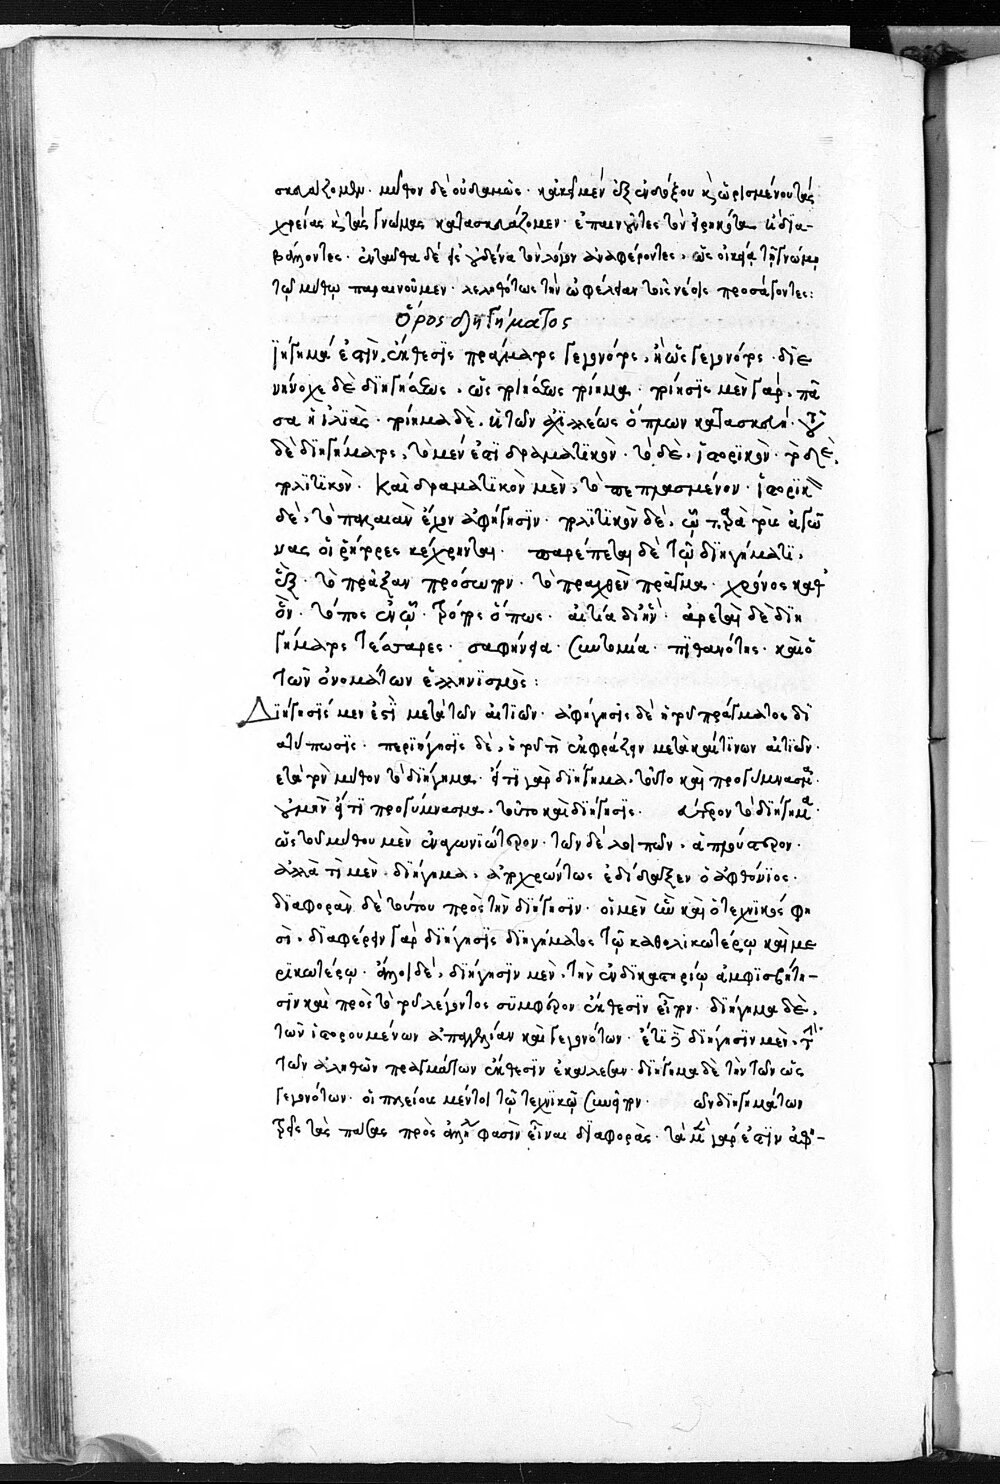 σκευάζομεν· μῦθον δὲ οὐδαμῶς· κἀκεῖ μὲν ἐξ ἐνδόξου κ ὡρισμένου τὰς
χρείας κ τὰς γνώμας κατασκευάζομεν· ἐπαινοῦντες τὸν εἰρηκότα ἢ δια-
βάλλοντες· ἐνταῦθα δὲ εἰς οὐδένα τὸν λόγον ἀναφέροντες, ὡς οἰκείᾳ τῇ γνώμῃ
τῷ μύθῳ παραινοῦμεν· λεληθότως τὴν ὠφέλειαν τοῖς νέοις προσάγοντες:
Ὅρος διηγήματος
ιήγημά ἐστιν, ἔκθεσις πράγματος γεγονότος, ἢ ὡς γεγονότος· διε
νήνοχε δὲ διηγήσεως, ὡς ποιήσεως ποίημα· ποίησις μὲν γὰρ, πᾶ
σα ἡ ἰλιὰς· ποίημα δὲ, ἡ τῶν ἀχιλλέως ὅπλων κατασκευή· τοῦ
δὲ διηγήματος, τὸ μέν ἐστι δραματικὸν· τὸ δὲ, ἱστορικὸν· τὸ δὲ,
πολιτικὸν· Καὶ δραματικὸν μὲν, τὸ πεπλασμένον· ἱστορικὸν
δὲ, τὸ παλαιὰν ἔχον ἀφήγησιν· πολιτικὸν δὲ, ᾧ παρὰ τοὺς ἀγῶ
νας οἱ ῥήτορες κέχρηνται· παρέπεται δὲ τῷ διηγήματι,
ἓξ· τὸ πρᾶξαν πρόσωπον· τὸ πραχθὲν πρᾶγμα· χρόνος καθ'
ὃν· τόπος ἐν ᾧ· τρόπος ὅπως· αἰτία δι' ἣν· ἀρεταὶ δὲ διη
γήματος τέσσαρες· σαφήνεια· συντομία· πιθανότης· καὶ ὁ
τῶν ὀνομάτων ἑλληνισμός:
Διήγησις μέν ἐστι μετὰ τῶν αἰτιῶν· ἀφήγησις δὲ ἡ τοῦ πράγματος δι
ατύπωσις· περιήγησις δὲ, ἡ τοῦ τι ἐκφράζειν μετὰ καί τινων αἰτιῶν·
ετὰ τὸν μῦθον τὸ διήγημα· εἴ τι γὰρ διήγημα, τοῦτο καὶ προγύμνασμα·
οὐ μὴν εἴ τι προγύμνασμα, τοῦτο καὶ διήγησις· δεύτερον τὸ διήγημα·
ὡς τοῦ μύθου μὲν ἐναγωνιώτερον· τῶν δὲ λοιπῶν, ἁπλούστερον·
ἀλλὰ τί μὲν διήγημα, ἀποχρώντως ἐδίδαξεν ὁ ἀφθόνιος·
διαφορὰν δὲ τούτου πρὸς τὴν διήγησιν· οἱ μὲν ὧν καὶ ὁ τεχνικός φη
σι, διαφέρειν γὰρ διήγησις διηγήματος τῷ καθολικωτέρῳ καὶ με
ρικωτέρῳ· ἄλλοι δέ, διήγησιν μὲν, τὴν ἐν δικαστηρίῳ ἀμφισβήτη-
σιν καὶ πρὸς τὸ τοῦ λέγοντος σύμφερον ἔκθεσιν εἶπον· διήγημα δὲ,
τῶν ἱστορουμένων ἀπαγγελίαν καὶ γεγονότων· ἕτεροι δὲ διήγησιν μὲν, τὴν
τῶν ἀληθῶν πραγμάτων ἔκθεσιν ἐκάλεσαν· διήγημα δὲ τὴν τῶν ὡς
γεγονότων· οἱ πλείους μέντοι τῷ τεχνικῷ συνεῖπον· ῶν διηγημάτων
τρεῖς τὰς πάσας πρὸς ἄλληλα φασὶν εἶναι διαφοράς· τὰ μὲν γάρ ἐστιν ἀφ-